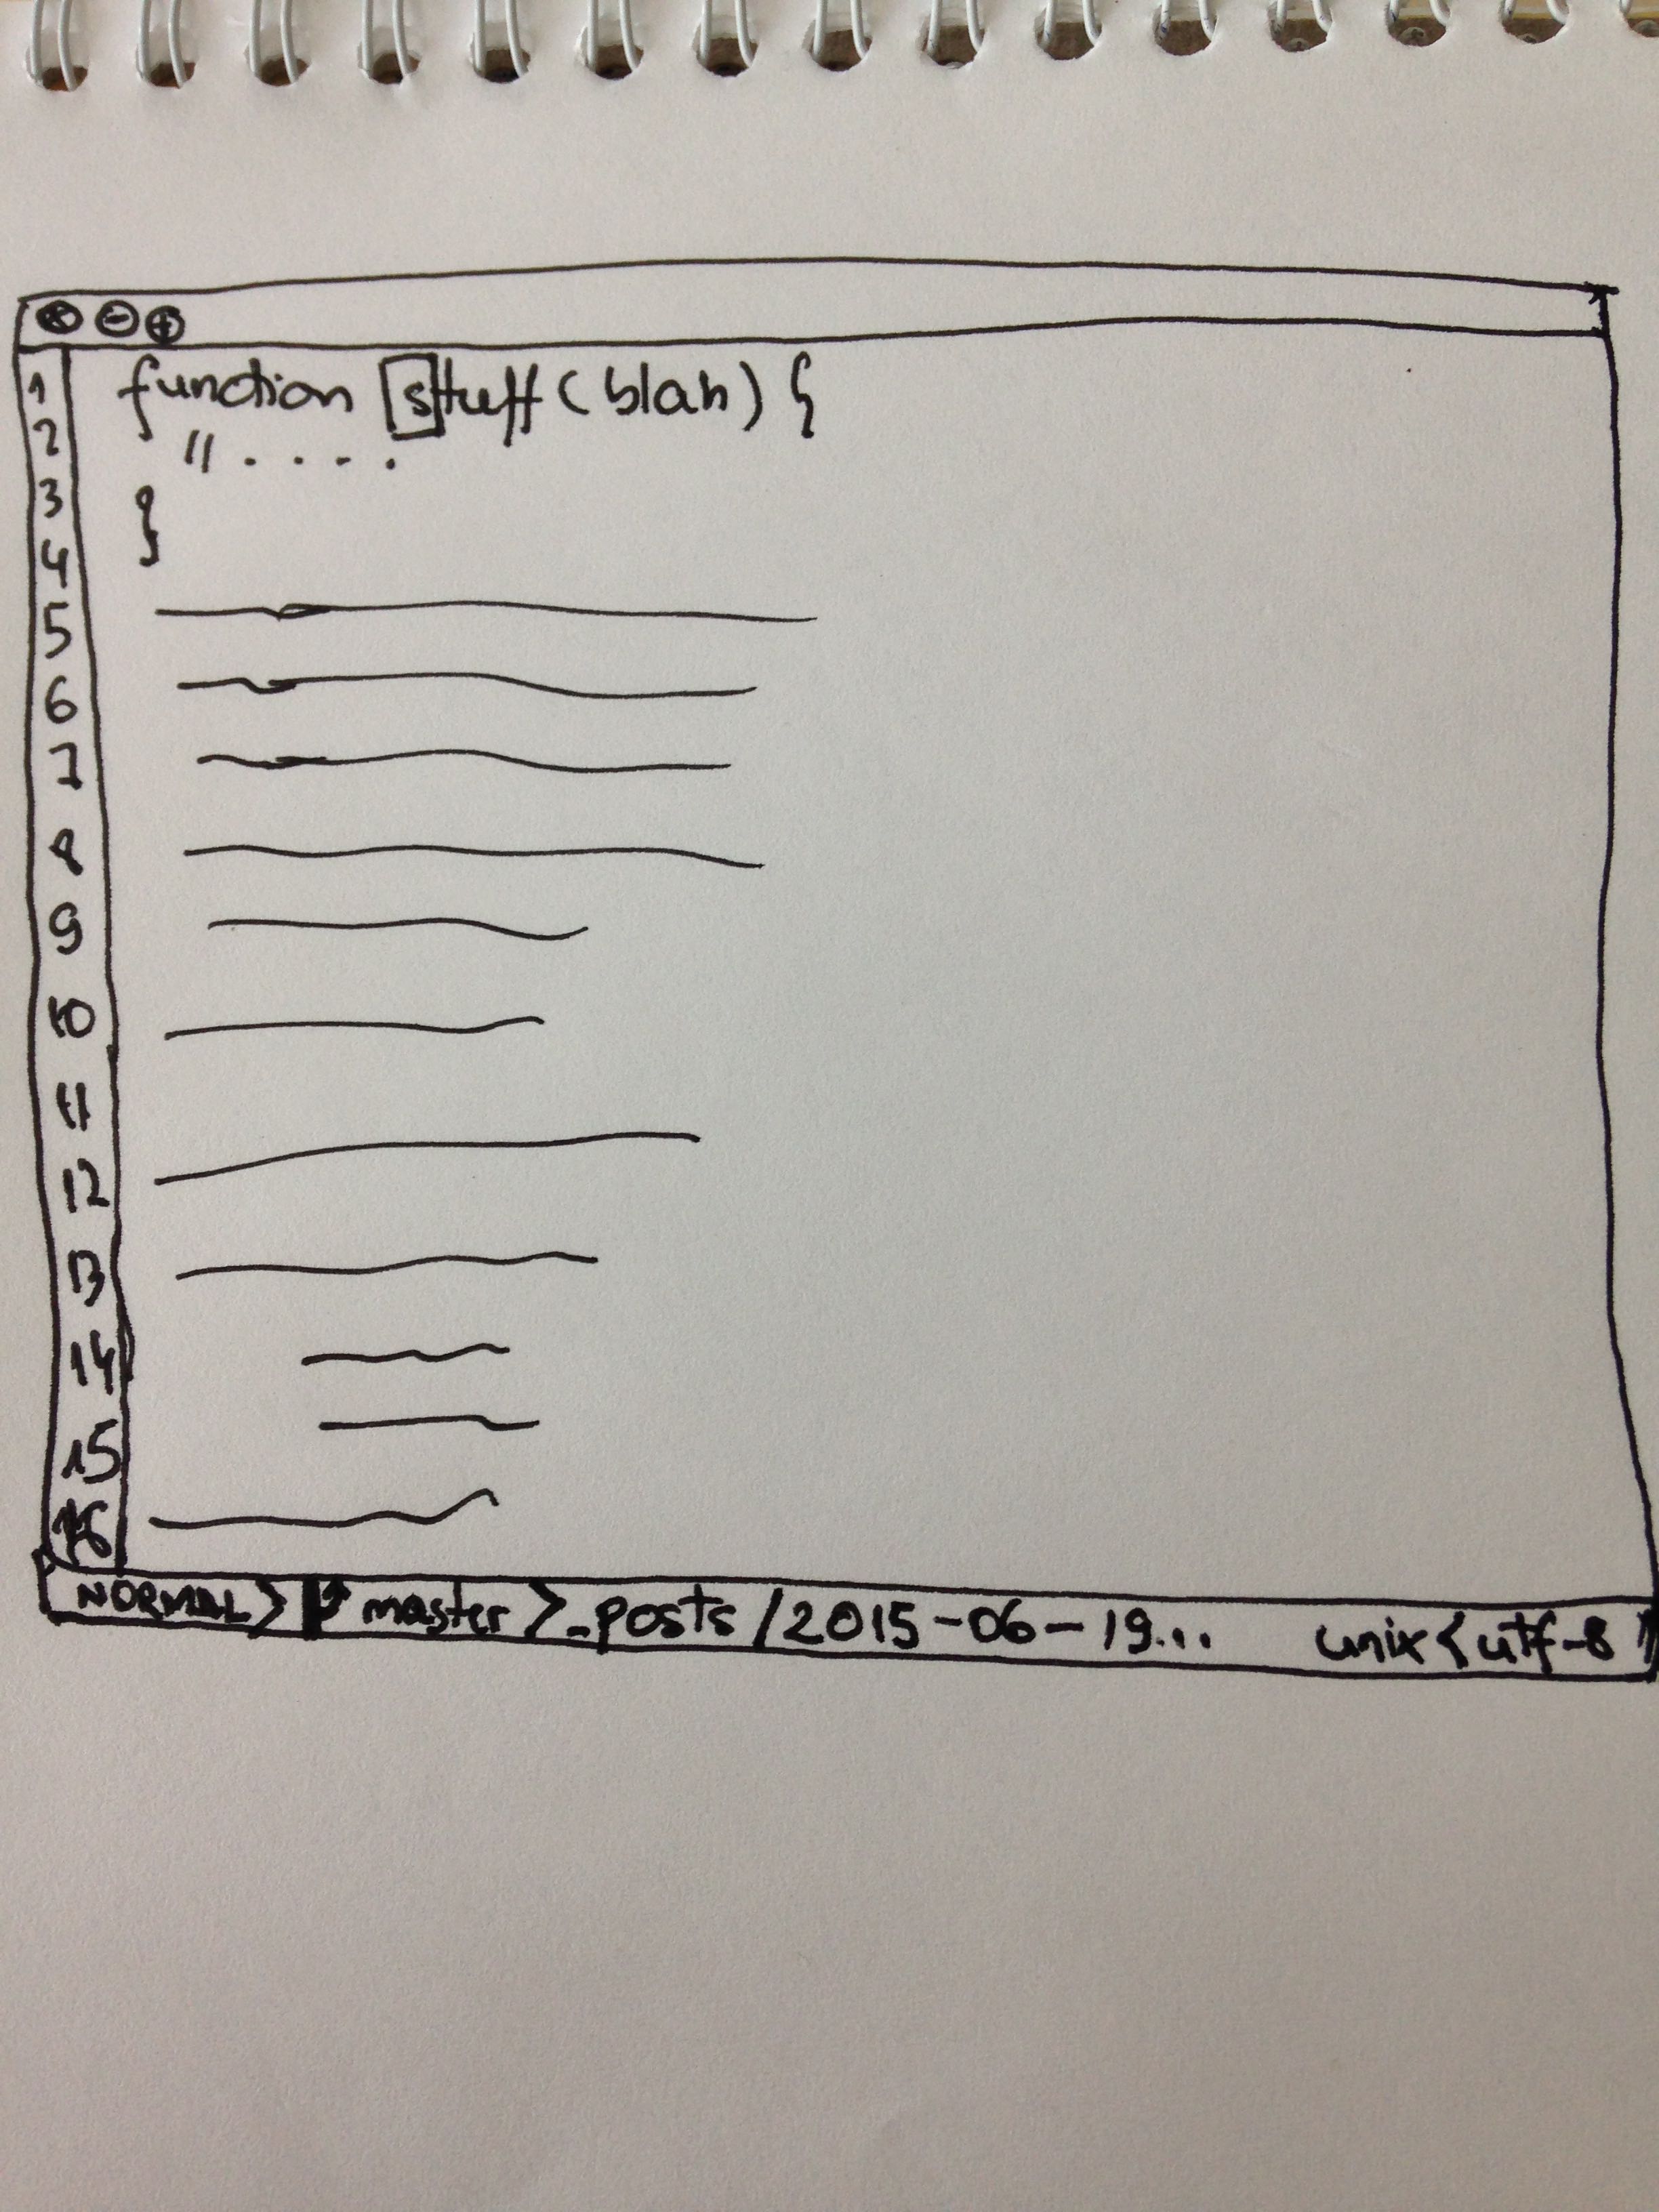 1 function stuff(blah) {
2 // ....
3 }
4
5
6
7
8
9
10
11
12
13
14
15
16
NORMAL > master > _posts/2015-06-19... unix < utf-8